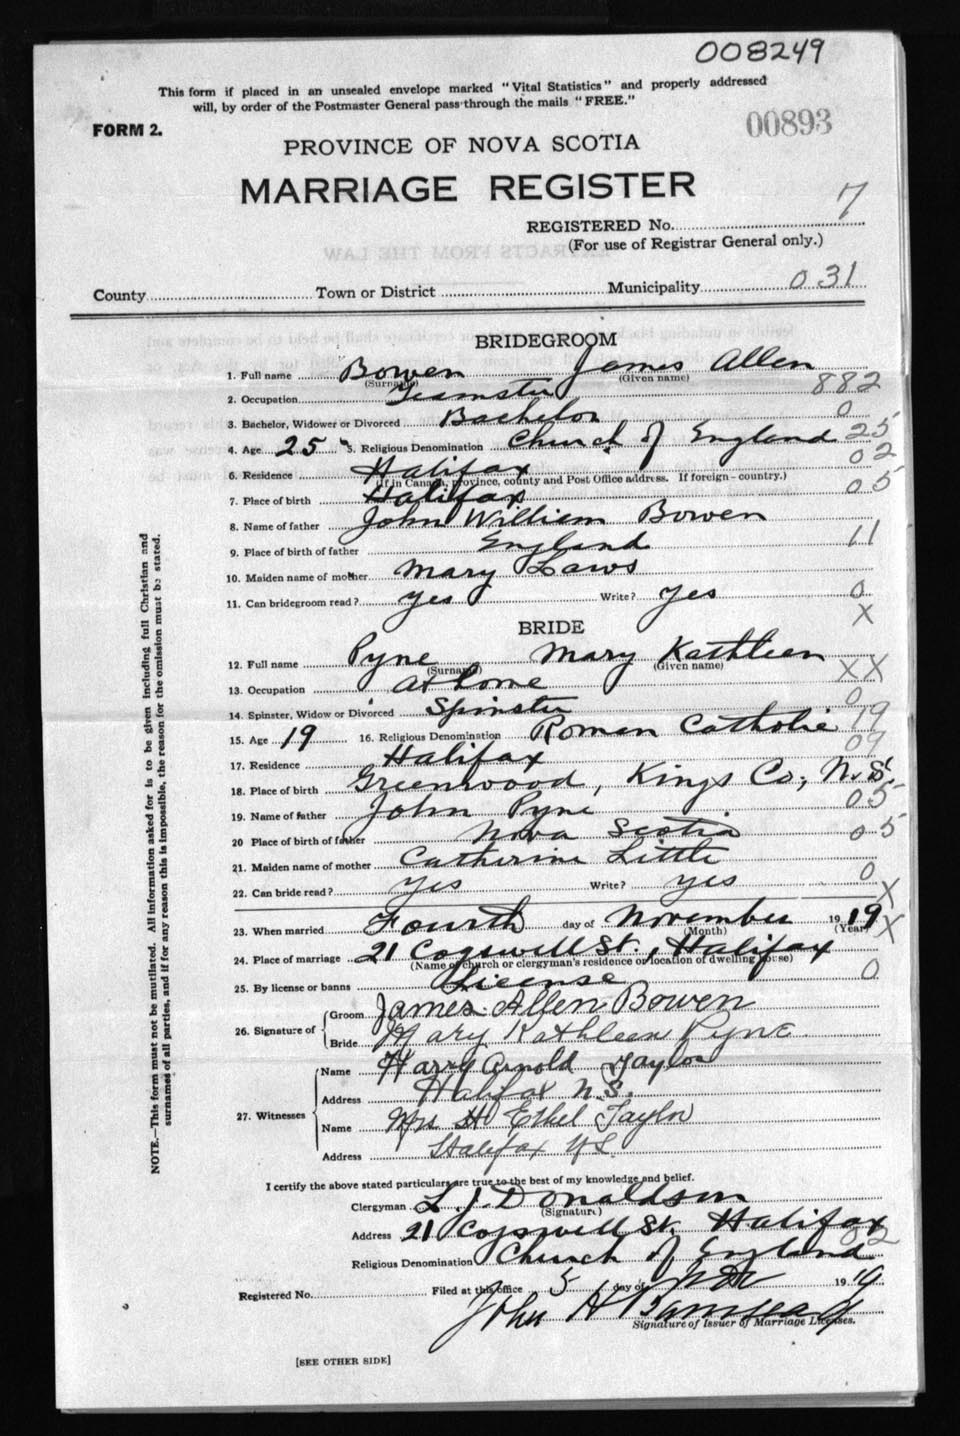 008249
This form if placed in an unsealed envelope marked "Vital Statistics" and properly addressed
will, by order of the Postmaster General pass through the mails "FREE."
FORM 2.
00893
PROVINCE OF NOVA SCOTIA
MARRIAGE REGISTER
REGISTERED No. 7
(For use of Registrar General only.)
EXTRACTS FROM THE LAW
County Town or District Municipality 031
BRIDEGROOM
1. Full name Bowen James Allen
(Surname) (Given name)
2. Occupation Teamster 882
3. Bachelor, Widower or Divorced Bachelor 0
4. Age 25 5. Religious Denomination Church of England 25
6. Residence Halifax 02
(If in Canada, province, county and Post Office address. If foreign - country.)
7. Place of birth Halifax 05
8. Name of father John William Bowen
9. Place of birth of father England 11
10. Maiden name of mother Mary Laws
11. Can bridegroom read? yes Write? yes 0
X
BRIDE
12. Full name Pyne Mary Kathleen
(Surname) (Given name)
13. Occupation at home XX
14. Spinster, Widow or Divorced Spinster 0
15. Age 19 16. Religious Denomination Roman Catholic 19
17. Residence Halifax 09
18. Place of birth Greenwood, Kings Co., N.S.
19. Name of father John Pyne 05
20 Place of birth of father Nova Scotia 05
21. Maiden name of mother Catherine Little
22. Can bride read? yes Write? yes 0
X
23. When married Fourth day of November 1919 X
(Month) (Year)
24. Place of marriage 21 Cogswell St., Halifax
(Name of church or clergyman's residence or location of dwelling house)
25. By license or banns License 0
26. Signature of Groom James Allen Bowen
Bride Mary Kathleen Pyne
27. Witnesses Name Harry Arnold Taylor
Address Halifax N.S.
Name Mrs H Ethel Taylor
Address Halifax NS
I certify the above stated particulars are true to the best of my knowledge and belief.
Clergyman L. J. Donaldson
(Signature)
Address 21 Cogswell St. Halifax
02
Religious Denomination Church of England
Registered No. Filed at this office 5 day of Nov 1919
John H
Signature of Issuer of Marriage Licenses.
[SEE OTHER SIDE]
NOTE.—This form must not be mutilated. All information asked for is to be given including full Christian and
surnames of all parties, and if for any reason this is impossible, the reason for the omission must be stated.